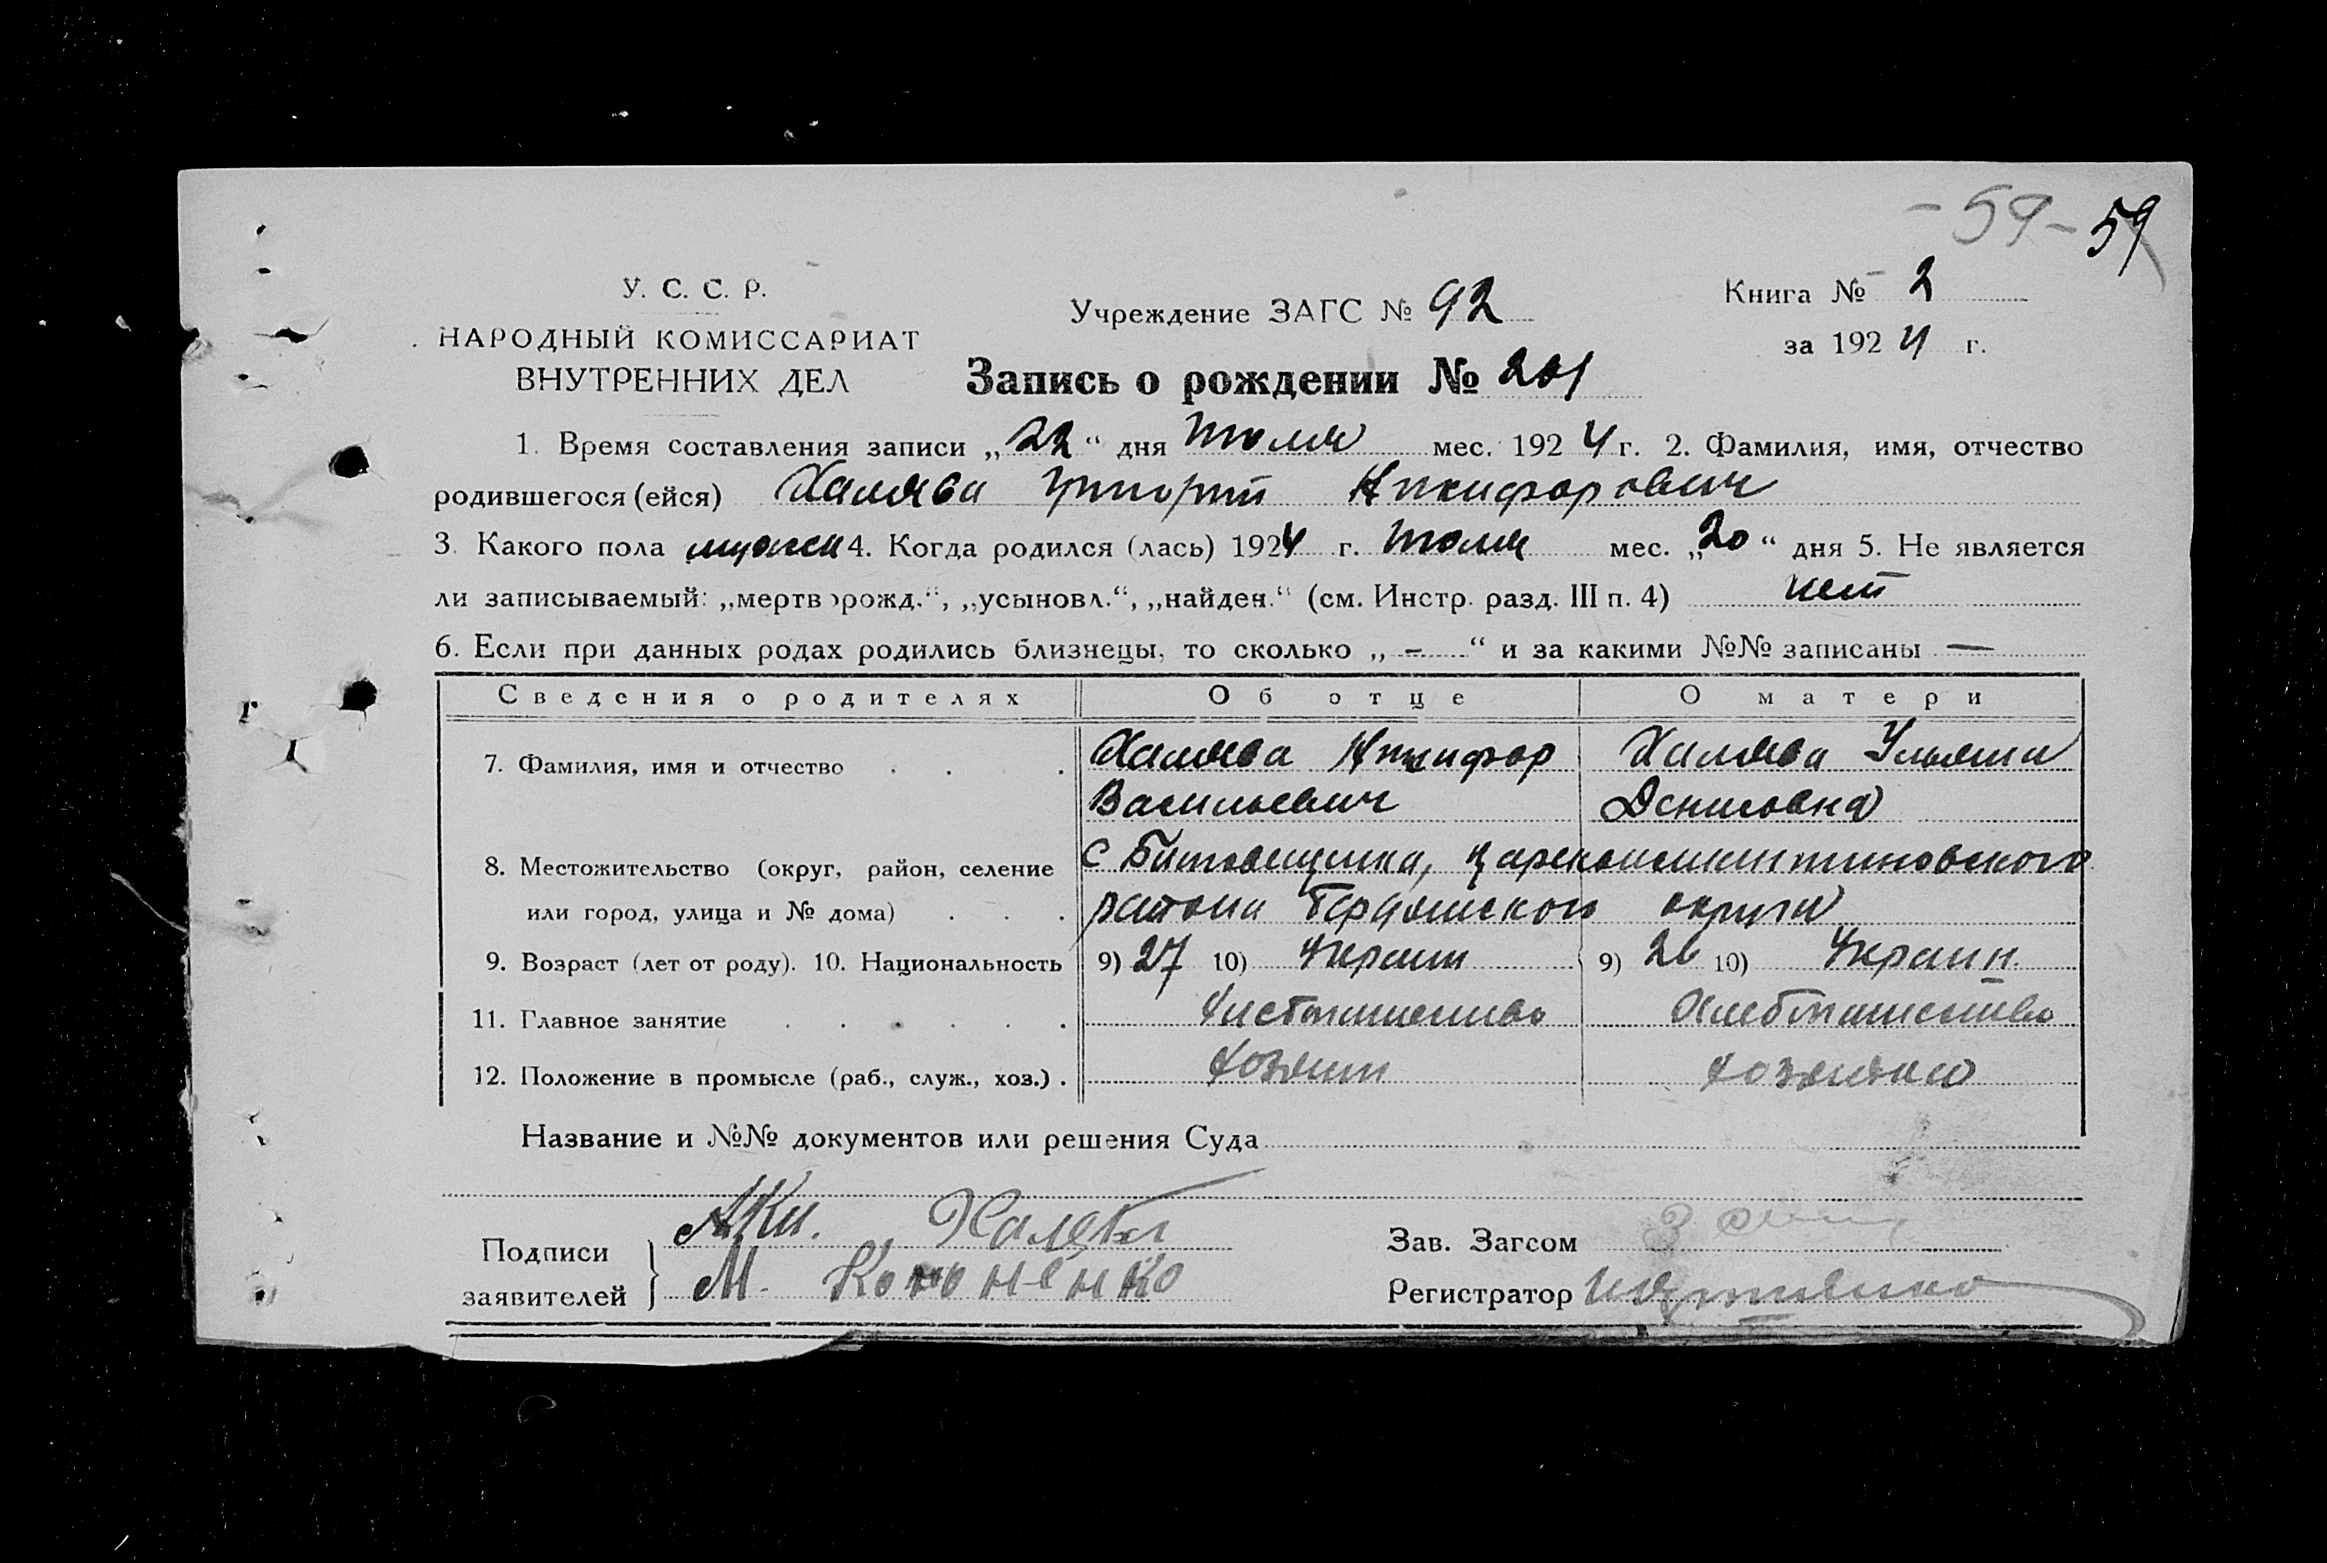 - 59 - 59
У. С. С. Р.
НАРОДНЫЙ КОМИССАРИАТ
ВНУТРЕННИХ ДЕЛ
Учреждение ЗАГС № 92
Книга № 2
за 1924 г.
Запись о рождении № 201
1. Время составления записи „22“ дня Июля мес. 1924 г. 2. Фамилия, имя, отчество
родившегося (ейся) Халява Григорий Никифорович
3. Какого пола мужск 4. Когда родился (лась) 1924 г. Июля мес. „20“ дня 5. Не является
ли записываемый: „мертворожд.“, „усыновл.“, „найден.“ (см. Инстр. разд. III п. 4) нет
6. Если при данных родах родились близнецы, то сколько „ – “ и за какими №№ записаны —
Сведения о родителях Об отце О матери
7. Фамилия, имя и отчество Халява Никифор Халява Ульяна
Васильевич Денисовна
8. Местожительство (округ, район, селение с. , Цареконстантиновского
или город, улица и № дома) района Бердянского округа
9. Возраст (лет от роду). 10. Национальность 9) 27 10) Украин 9) 26 10) Украин.
11. Главное занятие Хлебопашество Хлебопашество
12. Положение в промысле (раб., служ., хоз.) хозяин хозяйка
Название и №№ документов или решения Суда
Подписи Халява
заявителей М. Кононенко
Зав. Загсом
Регистратор